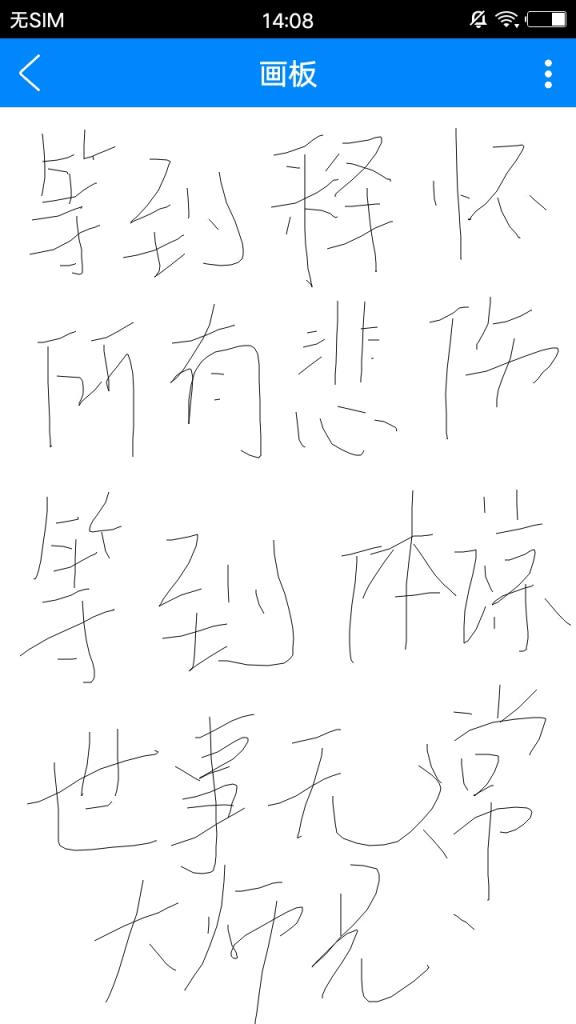 无SIM 14:08
画板
等到释怀
所有悲伤
等到体谅
世事无常
大师兄